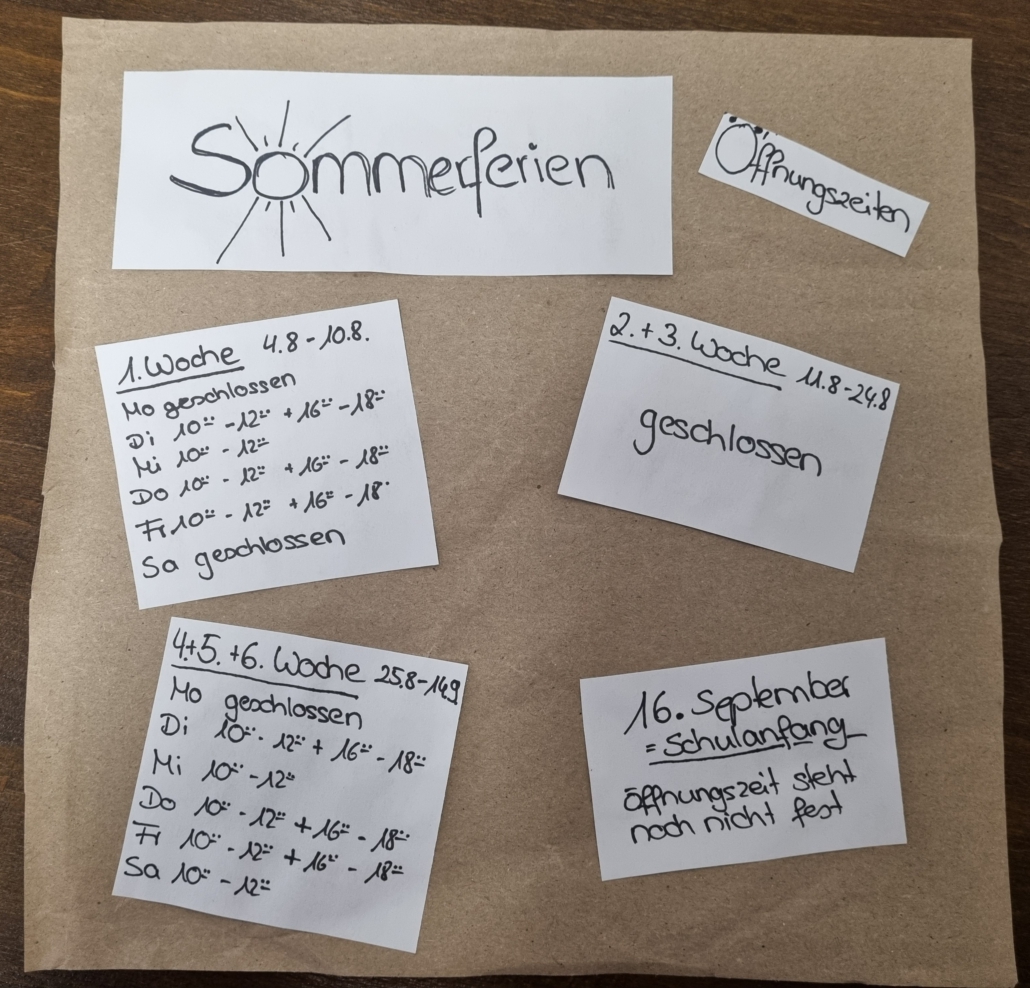 Sommerferien
Öffnungszeiten
1. Woche 4.8 - 10.8.
Mo geschlossen
Di 10⁰⁰ - 12⁰⁰ + 16⁰⁰ - 18⁰⁰
Mi 10⁰⁰ - 12⁰⁰
Do 10⁰⁰ - 12⁰⁰ + 16⁰⁰ - 18⁰⁰
Fr 10⁰⁰ - 12⁰⁰ + 16⁰⁰ - 18⁰⁰
Sa geschlossen
2. + 3. Woche 11.8 - 24.8
geschlossen
4.+5. +6. Woche 25.8 - 14.9
Mo geschlossen
Di 10⁰⁰ - 12⁰⁰ + 16⁰⁰ - 18⁰⁰
Mi 10⁰⁰ - 12⁰⁰
Do 10⁰⁰ - 12⁰⁰ + 16⁰⁰ - 18⁰⁰
Fr 10⁰⁰ - 12⁰⁰ + 16⁰⁰ - 18⁰⁰
Sa 10⁰⁰ - 12⁰⁰
16. September
= Schulanfang
öffnungszeit steht
noch nicht fest